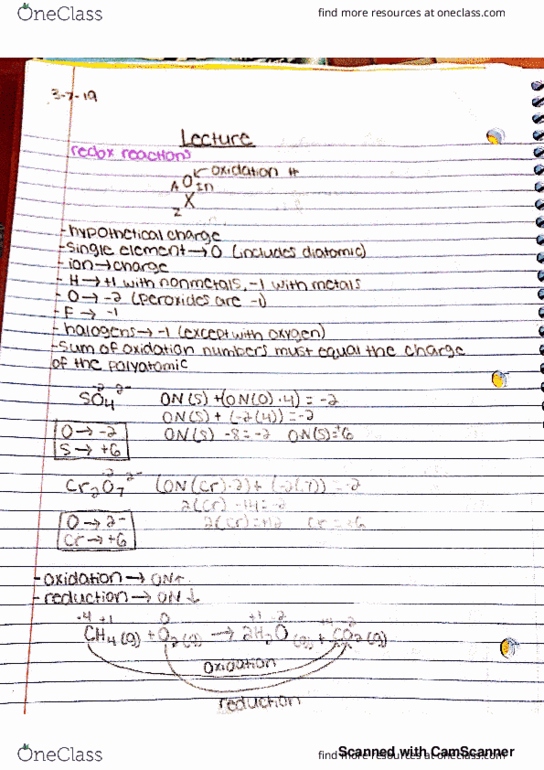 OneClass
find more resources at oneclass.com
3-7-19
Lecture
redox reactions
oxidation #
A O In
X
Z
-hypothetical charge
-Single element → O (includes diatomic)
-ion → charge
-H → +1 with nonmetals, -1 with metals
-O → -2 (peroxides are -1)
-F → -1
-halogens → -1 (except with oxygen)
-Sum of oxidation numbers must equal the charge
of the polyatomic
-2 2-
SO4 ON(S) + (ON(O)·4) = -2
ON(S) + (-2(4)) = -2
O → -2 ON(S) -8 = -2 ON(S) = +6
S → +6
-2 2-
Cr2O7 (ON(Cr)·2) + (-2(.7)) = -2
2(Cr) -14 = -2
O → 2- 2(Cr) = +12 Cr = +6
Cr → +6
-oxidation → ON↑
-reduction → ON↓
-4 +1 0 +1 -2 +4 -2
CH4(g) + O2(g) → 2H2O(g) + CO2(g)
oxidation
reduction
OneClass
find more resources at oneclass.com
Scanned with CamScanner